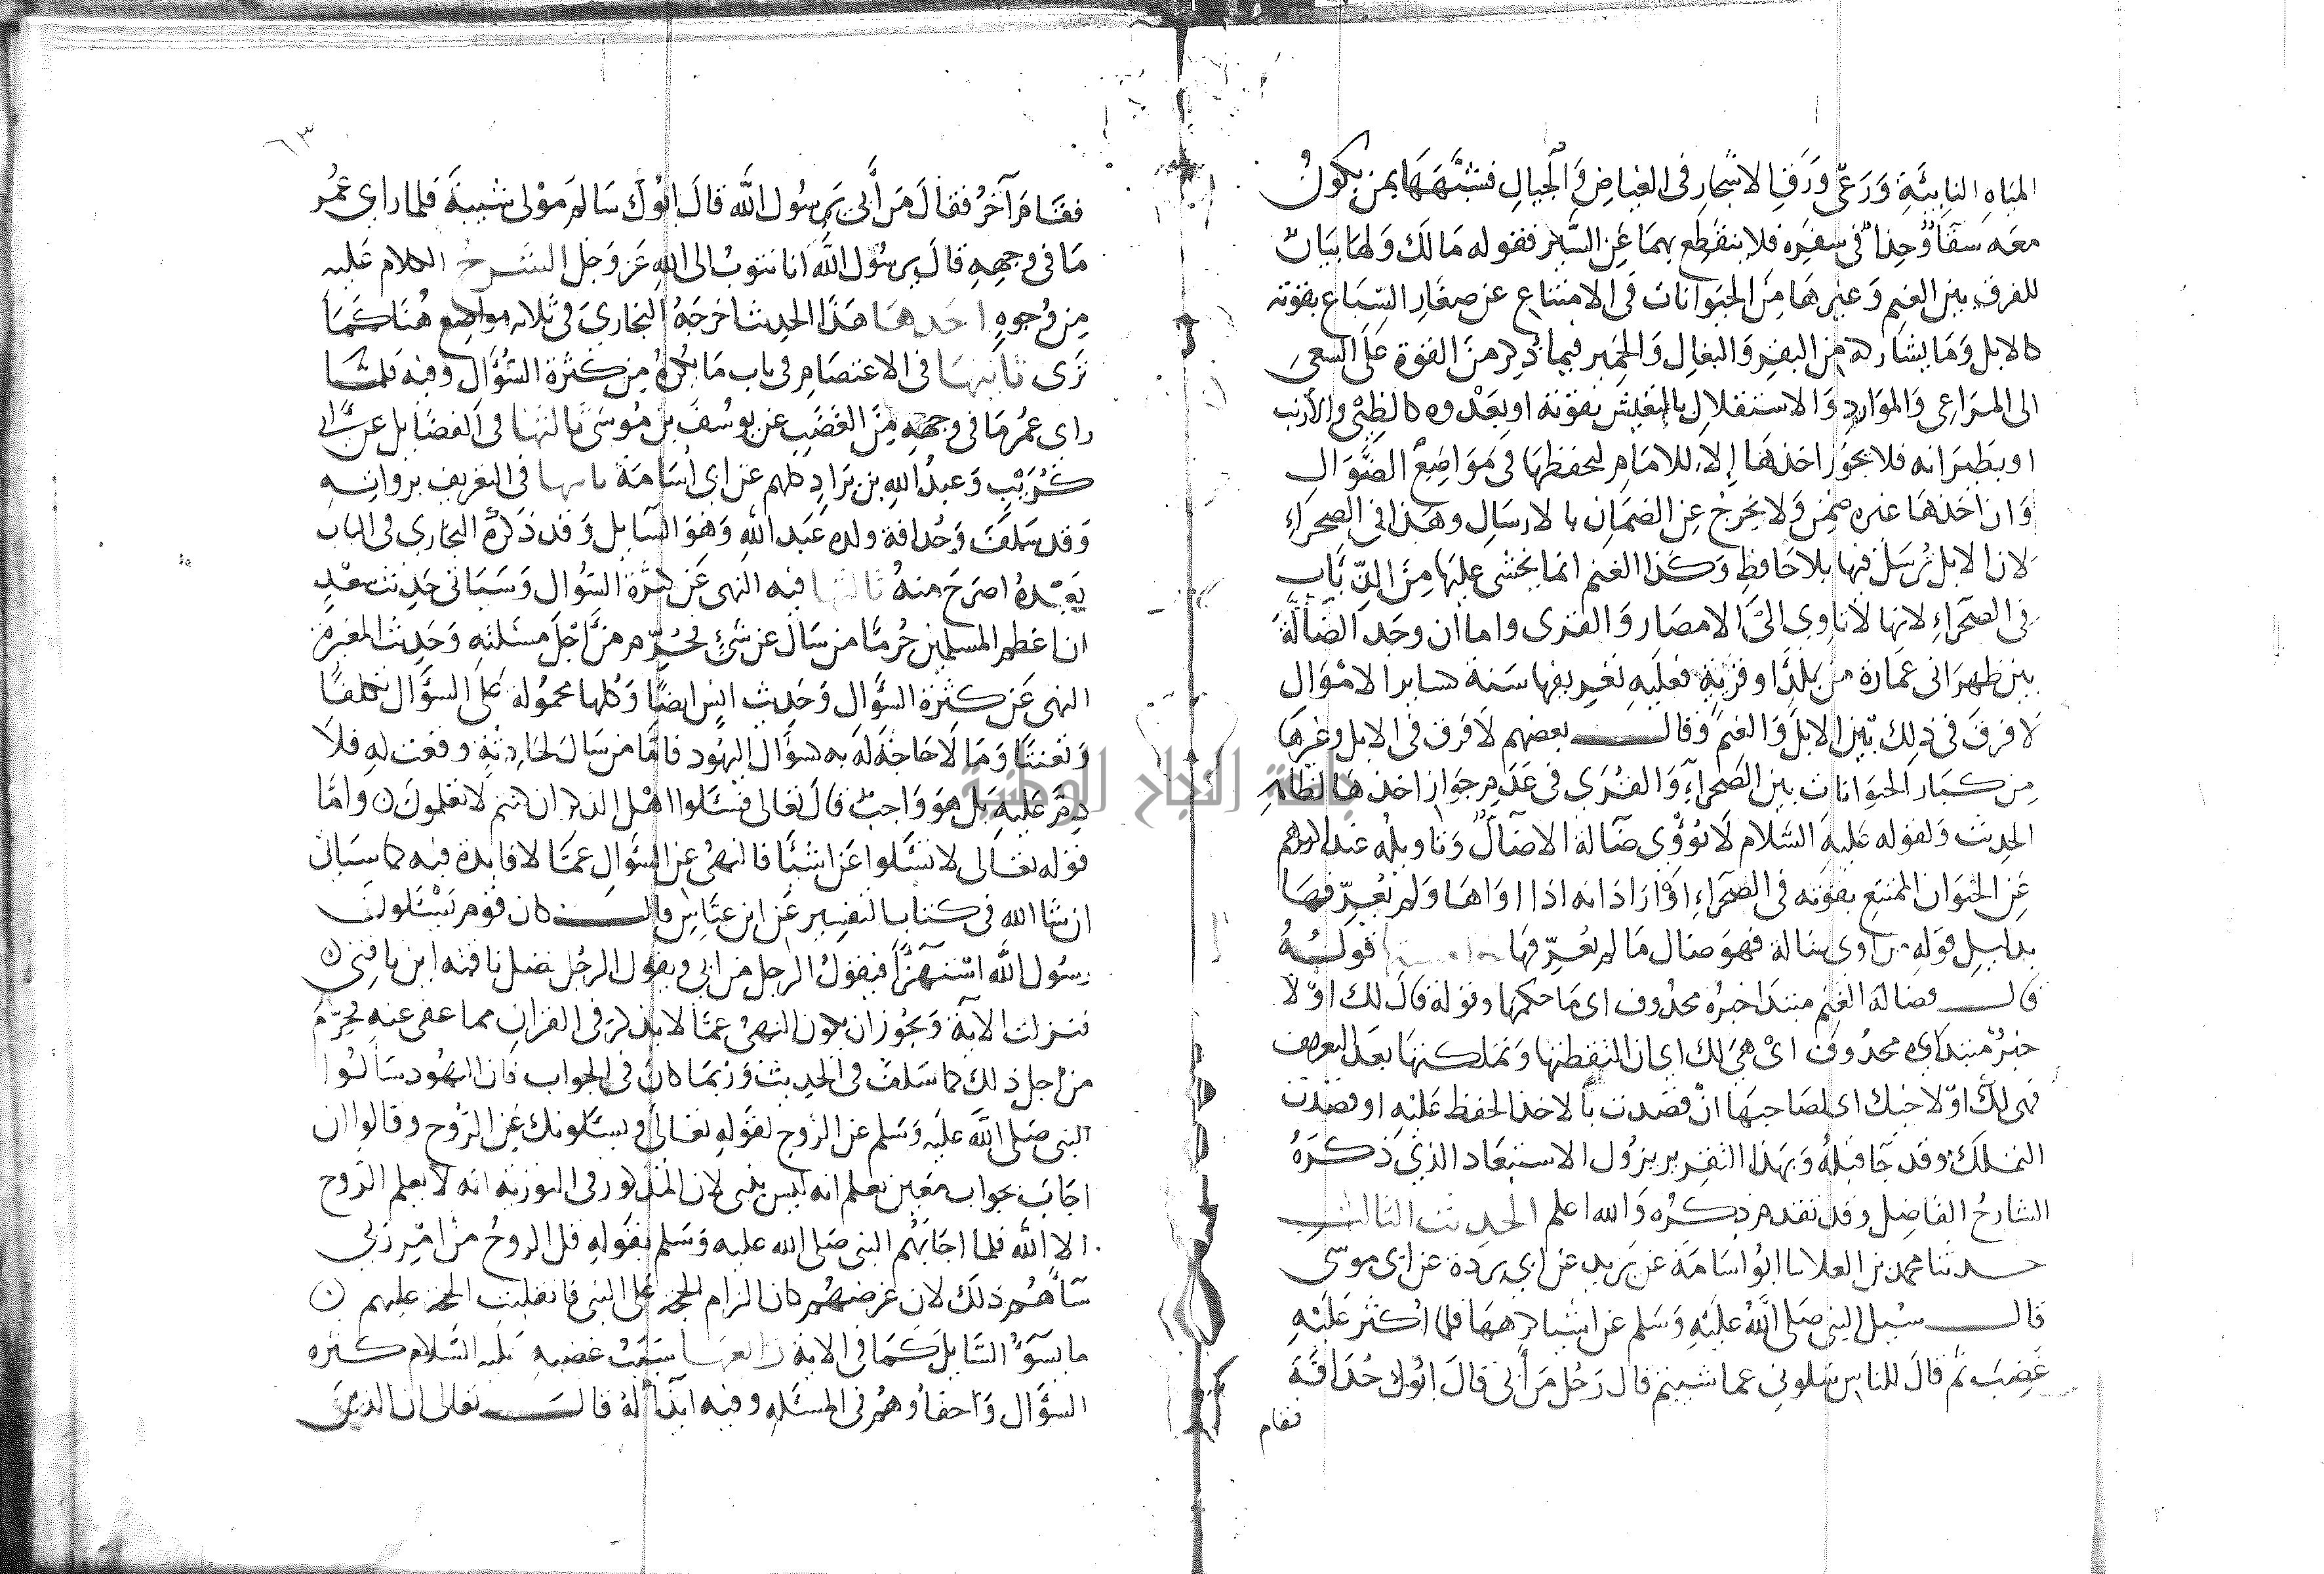 المياه النابية وَرَعْي وَرَق الاشجار في الغياض وَالجبالِ فشبَّهَهَا بمن يكونُ
معَه سقاؤُه وحِذاؤه في سفرِه فلا ينقطع بهما عَن السَّير فقوله مَالَك وَلها بيَان
للفرق بين الغنم وَغيرهَا مِن الحيَوانات في الامتناع عن صغَار السِّبَاع بقوته
كالابل وَمَا يشاركه من البقر وَالبغالِ وَالحمير فيما ذكر منَ القوة علَى السَعي
الى المرَاعي وَالموَاردِ وَالاستقلالِ بالتعيش بقوته او بعَدْوِه كالظبْي والارْنب
او بطيرَانه فلا يجوز اخذهَا إلا للامَام ليحفظهَا في مَوَاضِع الضَّوَال
وَان اخذهَا غيره ضمِنَ وَلا يخرجُ عن الضمَانِ بالارسَالِ وهَذا في الصحرَاءِ
لان الابل تُرسَل فيها بلا حَافظٍ وَكذا الغنم انما يخشى عليهَا مِن الذِّيَاب
في الصحَراءِ لانهَا لا تاوي الى الامصَار وَالقرى واما ان وجَد الضَّالَّةَ
بين ظهرَاني عمَارة من بلدٍ او قريَةٍ فعلَيهِ تعريفها سَنة كساير الامْوَالِ
لا فرقَ في ذلِك بَين الابل وَالغنم وَقال بعضهم لا فرق في الابل وغيرها
مِن كبَار الحيوَانات بين الصَحراءِ وَالقرى في عدَمِ جوَازِ اخذهَا لظاهِر
الحدِيث وَلقوله عَليهِ السَّلام لا يُؤْوي ضَالة الا ضَالٌّ وَتاويله عندَ
عَن الحيَوان الممتنع بقوته في الصحَراءِ اوْ ارَاد انه اذا اوَاهَا وَلم يُعرِّفهَا
بدليلِ قوله من اوى ضالة فهوَ ضال مَا لم يُعرِّفهَا قولُهُ
قال فضالة الغنم مبتدَا خبرُه محذوف اي مَا حكمها وقوله قالَ لك اوْ لا
خبرُ مبتداءٍ محذوف ايْ هيَ لك اي ان التقطتها وَتملكتها بعدَ التعريف
فهي لك اوْ لاخيك اي لصَاحبهَا انْ قصَدت بالاخذ الحفظ عليْهِ او قصَدْت
التملك وقد جَا قبلهُ وَبهَذا التقرير يزُول الاستبعَاد الذي ذكرَهُ
الشارحُ الفاضِل وقد تقدم ذكرُه وَالله اعلم الحديث الثالث
حدثنا محمد بن العلا نا ابُو اسَامَة عَن بُرَيد عَن ابي بردَة عن ابي موسَى
قال سُيل النبي صَلى اللهُ عليْهِ وَسَلم عن اشيا كرهها فلما اُكثر عَلَيْهِ
غَضِبَ ثم قالَ للناس سَلوني عما شييتم قال رَجُل مَن أبي قالَ ابُوك حُذافَة
فقام
٦٣
فقَامَ آخرُ فقالَ مَن أبي يَرسُول الله قالَ ابُوكَ سَالم مَوْلى شَيبَةَ فلما راي عمَرُ
مَا في وجههِ قالَ يرسُول اللهِ انا نتوبُ الى اللهِ عَز وَجل الشرحُ الكلام عَليه
مِن وُجوهٍ احدهَا هَذا الحديث اخرَجَهُ البخاري في ثلاثه مواضِع هُنا كمَا
ترَى ثانيهَا في الاعتصَامِ في باب مَا يُكرهُ مِن كثرَة السُّؤال وفيه فلمَّا
راى عمَر مَا في وجههِ مِنَ الغضَبِ عن يُوسُفَ بن مُوسَى ثالثهَا في الفضَايل عَن ابي
كُريْبٍ وَعبدِ اللهِ بن بَرَّادٍ كلهم عن ابي اُسَامَةَ ثانيها في التعريف برواتهِ
وَقد سَلفَ وَحُذافة ولده عَبد اللهِ وَهوَ السَّايل وَقد ذكَرهُ البخاري في الباب
بَعْدهُ اصرَحَ منهُ ثالثها فيه النهى عَن كثرة السُّوال وَسَيَاتي حَديث سعْدٍ
ان اعظم المسلمين جُرمًا من سَال عن شئ فحُرِّم من اجْل مسئلته وَحَديث المغيرة
النهى عَن كثرَة السُّؤال وَحديث انس ايضًا وَكلها محمُولة على السُّؤال تكلفًا
وَتعنتًا وَمَا لا حَاجَة لَهُ به كسُؤال اليهُود فامَّا من سَال لحادثةٍ وقعت لهِ فلا
ذمَّ عَليهِ بَل هوَ وَاجبٌ قالَ تعَالى فسْئلوا اهْل الذكر ان كنتم لا تعلمونَ وَامَّا
قوله تعَالى لا تسْئلوا عَن اشيَا فالنهىُ عن السُّؤالِ عمَّا لا فايدة فيه كما سيَاتي
ان شا الله في كتاب التفسير عَن ابن عبَّاس قال كان قومٌ يَسْئلونَ
رسُول الله اسْتهزًا فيقولُ الرجل من ابي ويقول الرجُل تضل ناقته اين ناقتي
فنزلت الاية وَيجوز ان يكون النهىُ عمَّا لا يذكر في القرانِ مما عفى عنهِ فحُرِّمَ
من اجل ذلك كما سَلفَ في الحديث وَربمَا كانَ في الجواب فان اليهُود سَالوا
النبي صَلى الله عليه وَسَلم عن الرُّوح لقوْلهِ تعَالى ويسئلونك عَن الرُّوح وقالوا ان
اجَابَ بجوابِ مُعين نعلم انه ليسَ بنبى لان المذكور في التورية انه لا يعلم الرُّوح
الا الله فلما اجَابَهُم النبي صَلى الله عليه وَسَلم بقوْلهِ قل الروحُ منْ امْر ربي
سَآهُم ذلك لان غرضهُم كان الزام الحجة على النبي فانقلبت الحجة عليهم
ما يسُوُّ السَّايل كمَا في الاية رابعهَا سبَبُ غضبهِ عَليه السَّلام كثرة
السُّؤال وَاحفاؤهُم في المسئلهِ وفيه ايذاٌ لهُ قالَ تعَالى ان الذينَ